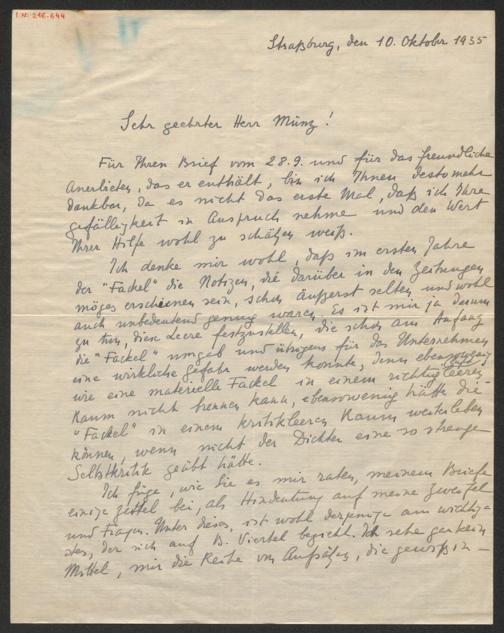 I.N. 216.644
Straßburg, den 10. Oktober 1935
Sehr geehrter Herr Münz!
Für Ihren Brief vom 28.9. und für das freundliche
Anerbieten, das er enthält, bin ich Ihnen desto mehr
dankbar, da es nicht das erste Mal, daß ich Ihre
Gefälligkeit in Anspruch nehme und den Wert
Ihrer Hilfe wohl zu schätzen weiß.
Ich denke mir wohl, daß im ersten Jahre
der "Fackel" die Notizen, die darüber in den Zeitungen
mögen erschienen sein, schon äußerst selten und wohl
auch unbedeutend genug waren. Es ist mir ja darum
zu tun, diese Leere festzustellen, die schon am Anfang
die "Fackel" umgab und übrigens für das Unternehmen
eine wirkliche Gefahr werden konnte, denn ebensowenig
wie eine materielle Fackel in einem richtig leeren
Raum nicht brennen kann, ebensowenig hätte die
"Fackel" in einem kritikleeren Raum weiterleben
können, wenn nicht der Dichter eine so strenge
Selbstkritik geübt hätte.
Ich füge, wie Sie es mir raten, meinem Briefe
einige Zettel bei, als Hindeutung auf meine Zweifel
und Fragen. Unter diesen ist wohl derjenige am wichtig-
sten, der sich auf B. Viertel bezieht. Ich sehe gar kein
Mittel, mir die Reihe von Aufsätzen, die gewiß in-